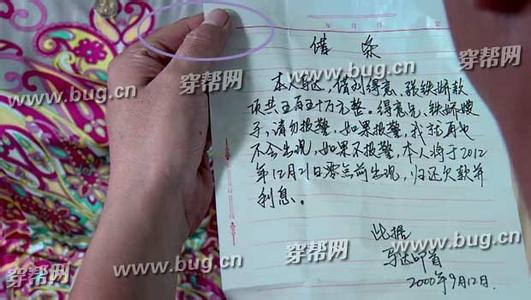 穿帮网
www.bug.cn
穿帮网
www.bug.cn
年 月 日
借 条
本人马达,借刘得意、张铁娇款
项共五百五十万元整。得意兄,铁娇嫂
子,请勿报警,如果报警,我就再也
不会出现,如果不报警,本人将于2012
年12月21日零点前出现,归还欠款并
利息。
此据
马达叩首
2000年9月12日.
穿帮网
www.bug.cn
穿帮网
www.bug.cn